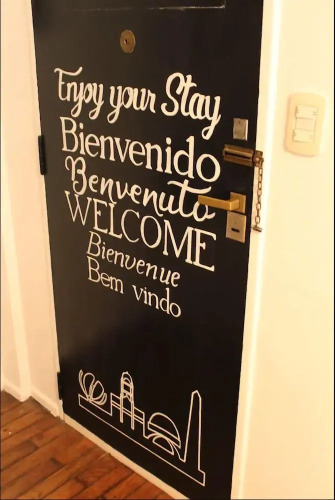 Enjoy your Stay
Bienvenido
Benvenuto
WELCOME
Bienvenue
Bem vindo